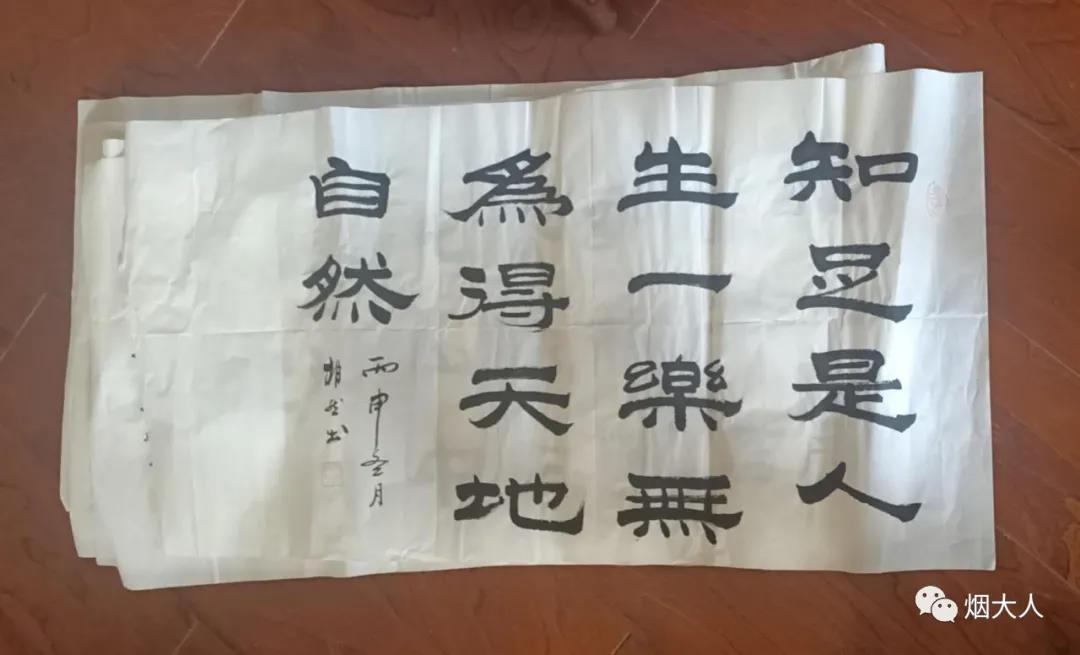 知足是人
生一樂無
為得天地
自然
丙申冬月
書
烟大人